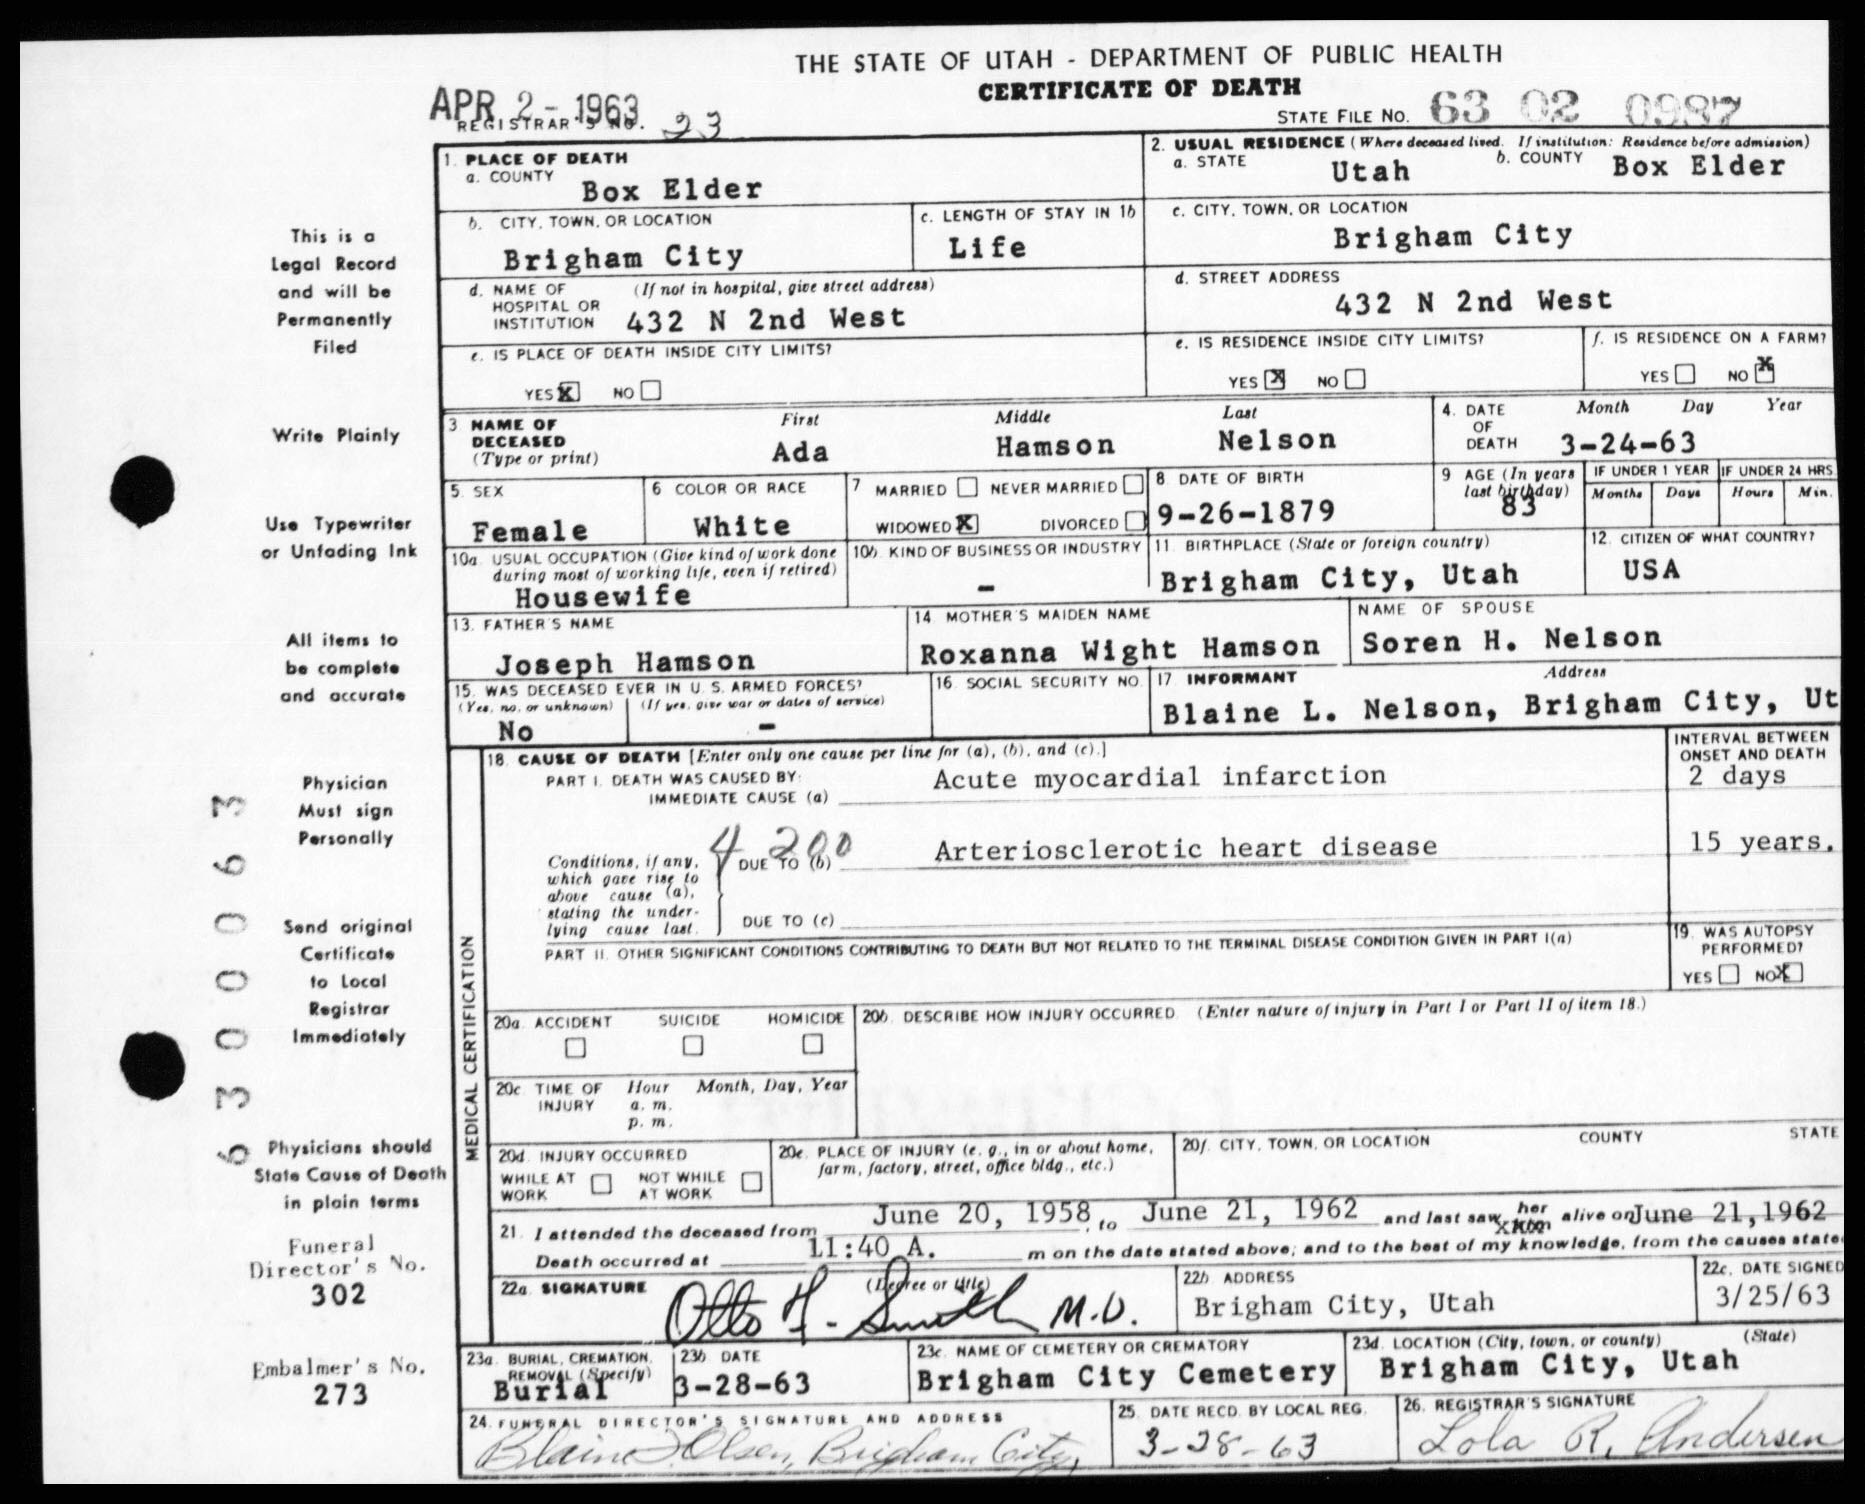 THE STATE OF UTAH - DEPARTMENT OF PUBLIC HEALTH
CERTIFICATE OF DEATH
APR 2 - 1963
REGISTRAR'S NO. 23
STATE FILE NO. 63 02 0987
1. PLACE OF DEATH
a. COUNTY Box Elder
2. USUAL RESIDENCE (Where deceased lived. If institution: Residence before admission)
a. STATE Utah b. COUNTY Box Elder
b. CITY, TOWN, OR LOCATION Brigham City
c. LENGTH OF STAY IN 1b Life
c. CITY, TOWN, OR LOCATION Brigham City
d. NAME OF HOSPITAL OR INSTITUTION (If not in hospital, give street address) 432 N 2nd West
d. STREET ADDRESS 432 N 2nd West
e. IS PLACE OF DEATH INSIDE CITY LIMITS?
YES X NO
e. IS RESIDENCE INSIDE CITY LIMITS?
YES X NO
f. IS RESIDENCE ON A FARM?
YES NO X
3 NAME OF DECEASED (Type or print)
First Middle Last
Ada Hamson Nelson
4. DATE OF DEATH Month Day Year
3-24-63
5. SEX Female
6 COLOR OR RACE White
7 MARRIED NEVER MARRIED
WIDOWED X DIVORCED
8 DATE OF BIRTH 9-26-1879
9 AGE (In years last birthday) 83
IF UNDER 1 YEAR Months Days
IF UNDER 24 HRS Hours Min.
10a. USUAL OCCUPATION (Give kind of work done during most of working life, even if retired)
Housewife
10b. KIND OF BUSINESS OR INDUSTRY -
11. BIRTHPLACE (State or foreign country)
Brigham City, Utah
12. CITIZEN OF WHAT COUNTRY?
USA
13. FATHER'S NAME Joseph Hamson
14. MOTHER'S MAIDEN NAME Roxanna Wight Hamson
NAME OF SPOUSE Soren H. Nelson
15. WAS DECEASED EVER IN U. S. ARMED FORCES?
(Yes, no, or unknown) (If yes, give war or dates of service)
No -
16. SOCIAL SECURITY NO.
17 INFORMANT Address
Blaine L. Nelson, Brigham City, Ut
18. CAUSE OF DEATH [Enter only one cause per line for (a), (b), and (c).]
PART I. DEATH WAS CAUSED BY:
IMMEDIATE CAUSE (a) Acute myocardial infarction
INTERVAL BETWEEN ONSET AND DEATH
2 days
4 200
Conditions, if any, which gave rise to above cause (a), stating the underlying cause last.
DUE TO (b) Arteriosclerotic heart disease
15 years.
DUE TO (c)
PART II. OTHER SIGNIFICANT CONDITIONS CONTRIBUTING TO DEATH BUT NOT RELATED TO THE TERMINAL DISEASE CONDITION GIVEN IN PART I(a)
19. WAS AUTOPSY PERFORMED?
YES NO X
MEDICAL CERTIFICATION
20a. ACCIDENT SUICIDE HOMICIDE
20b. DESCRIBE HOW INJURY OCCURRED. (Enter nature of injury in Part I or Part II of item 18.)
20c. TIME OF INJURY Hour Month, Day, Year
a. m.
p. m.
20d. INJURY OCCURRED
WHILE AT WORK NOT WHILE AT WORK
20e. PLACE OF INJURY (e. g., in or about home, farm, factory, street, office bldg., etc.)
20f. CITY, TOWN, OR LOCATION COUNTY STATE
21. I attended the deceased from June 20, 1958, to June 21, 1962 and last saw her alive on June 21,1962
Death occurred at 11:40 A. m on the date stated above; and to the best of my knowledge, from the causes state
22a. SIGNATURE (Degree or title)
Otto F. Smith M.D.
22b ADDRESS
Brigham City, Utah
22c. DATE SIGNED
3/25/63
23a. BURIAL, CREMATION, REMOVAL (Specify)
Burial
23b DATE
3-28-63
23c. NAME OF CEMETERY OR CREMATORY
Brigham City Cemetery
23d. LOCATION (City, town, or county) (State)
Brigham City, Utah
24. FUNERAL DIRECTOR'S SIGNATURE AND ADDRESS
Blaine Olsen, Brigham City,
25. DATE RECD. BY LOCAL REG.
3-28-63
26. REGISTRAR'S SIGNATURE
Lola R. Andersen
This is a
Legal Record
and will be
Permanently
Filed
Write Plainly
Use Typewriter
or Unfading Ink
All items to
be complete
and accurate
Physician
Must sign
Personally
Send original
Certificate
to Local
Registrar
Immediately
Physicians should
State Cause of Death
in plain terms
Funeral
Director's No.
302
Embalmer's No.
273
6300063